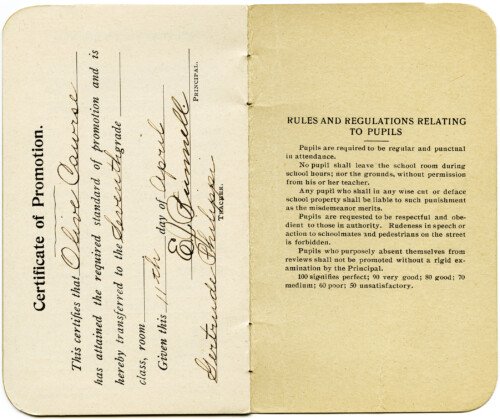 Certificate of Promotion.
This certifies that Olive Cowrse
has attained the required standard of promotion and is
hereby transferred to the Seventh grade
class, room
Given this 11th day of April
E. Bunnell
PRINCIPAL.
Gertrude
TEACHER.
RULES AND REGULATIONS RELATING
TO PUPILS
Pupils are required to be regular and punctual
in attendance.
No pupil shall leave the school room during
school hours; nor the grounds, without permission
from his or her teacher.
Any pupil who shall in any wise cut or deface
school property shall be liable to such punishment
as the misdemeanor merits.
Pupils are requested to be respectful and obe-
dient to those in authority. Rudeness in speech or
action to schoolmates and pedestrians on the street
is forbidden.
Pupils who purposely absent themselves from
reviews shall not be promoted without a rigid ex-
amination by the Principal.
100 signifies perfect; 90 very good; 80 good; 70
medium; 60 poor; 50 unsatisfactory.